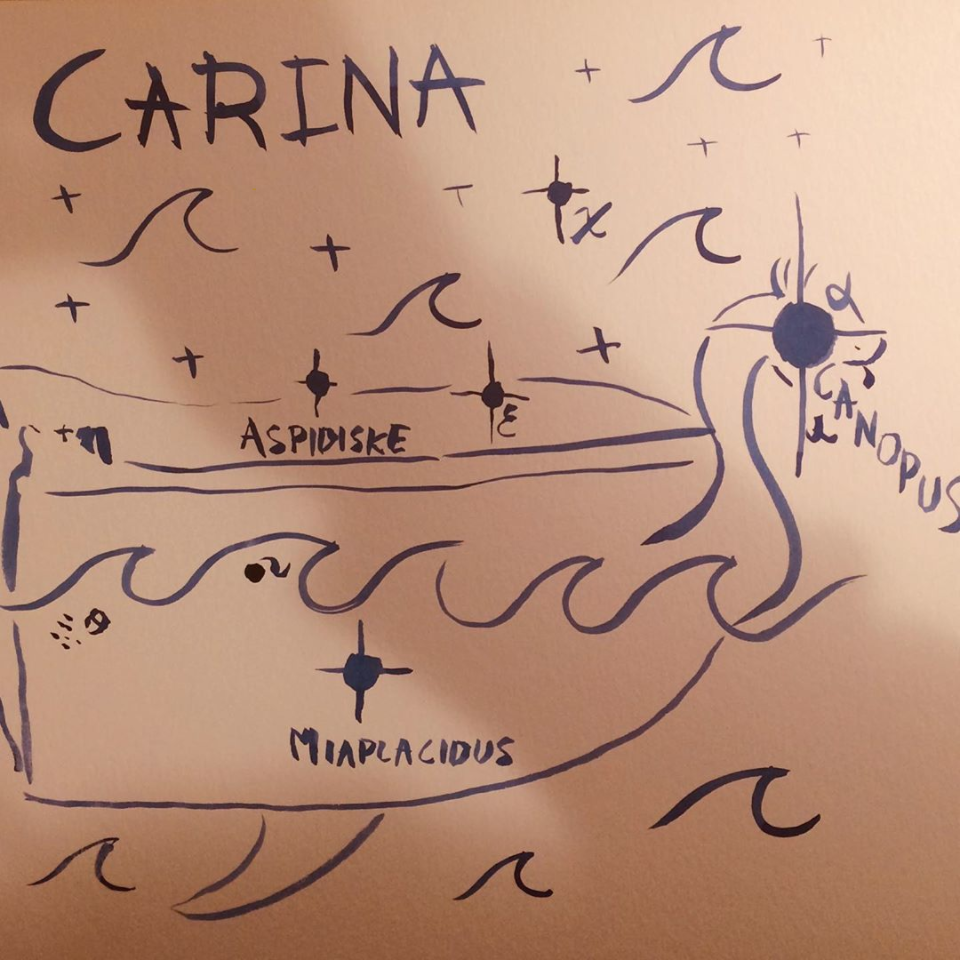 CARINA
χ
α
CANOPUS
ε
η
ASPIDISKE
υ
θ
MIAPLACIDUS